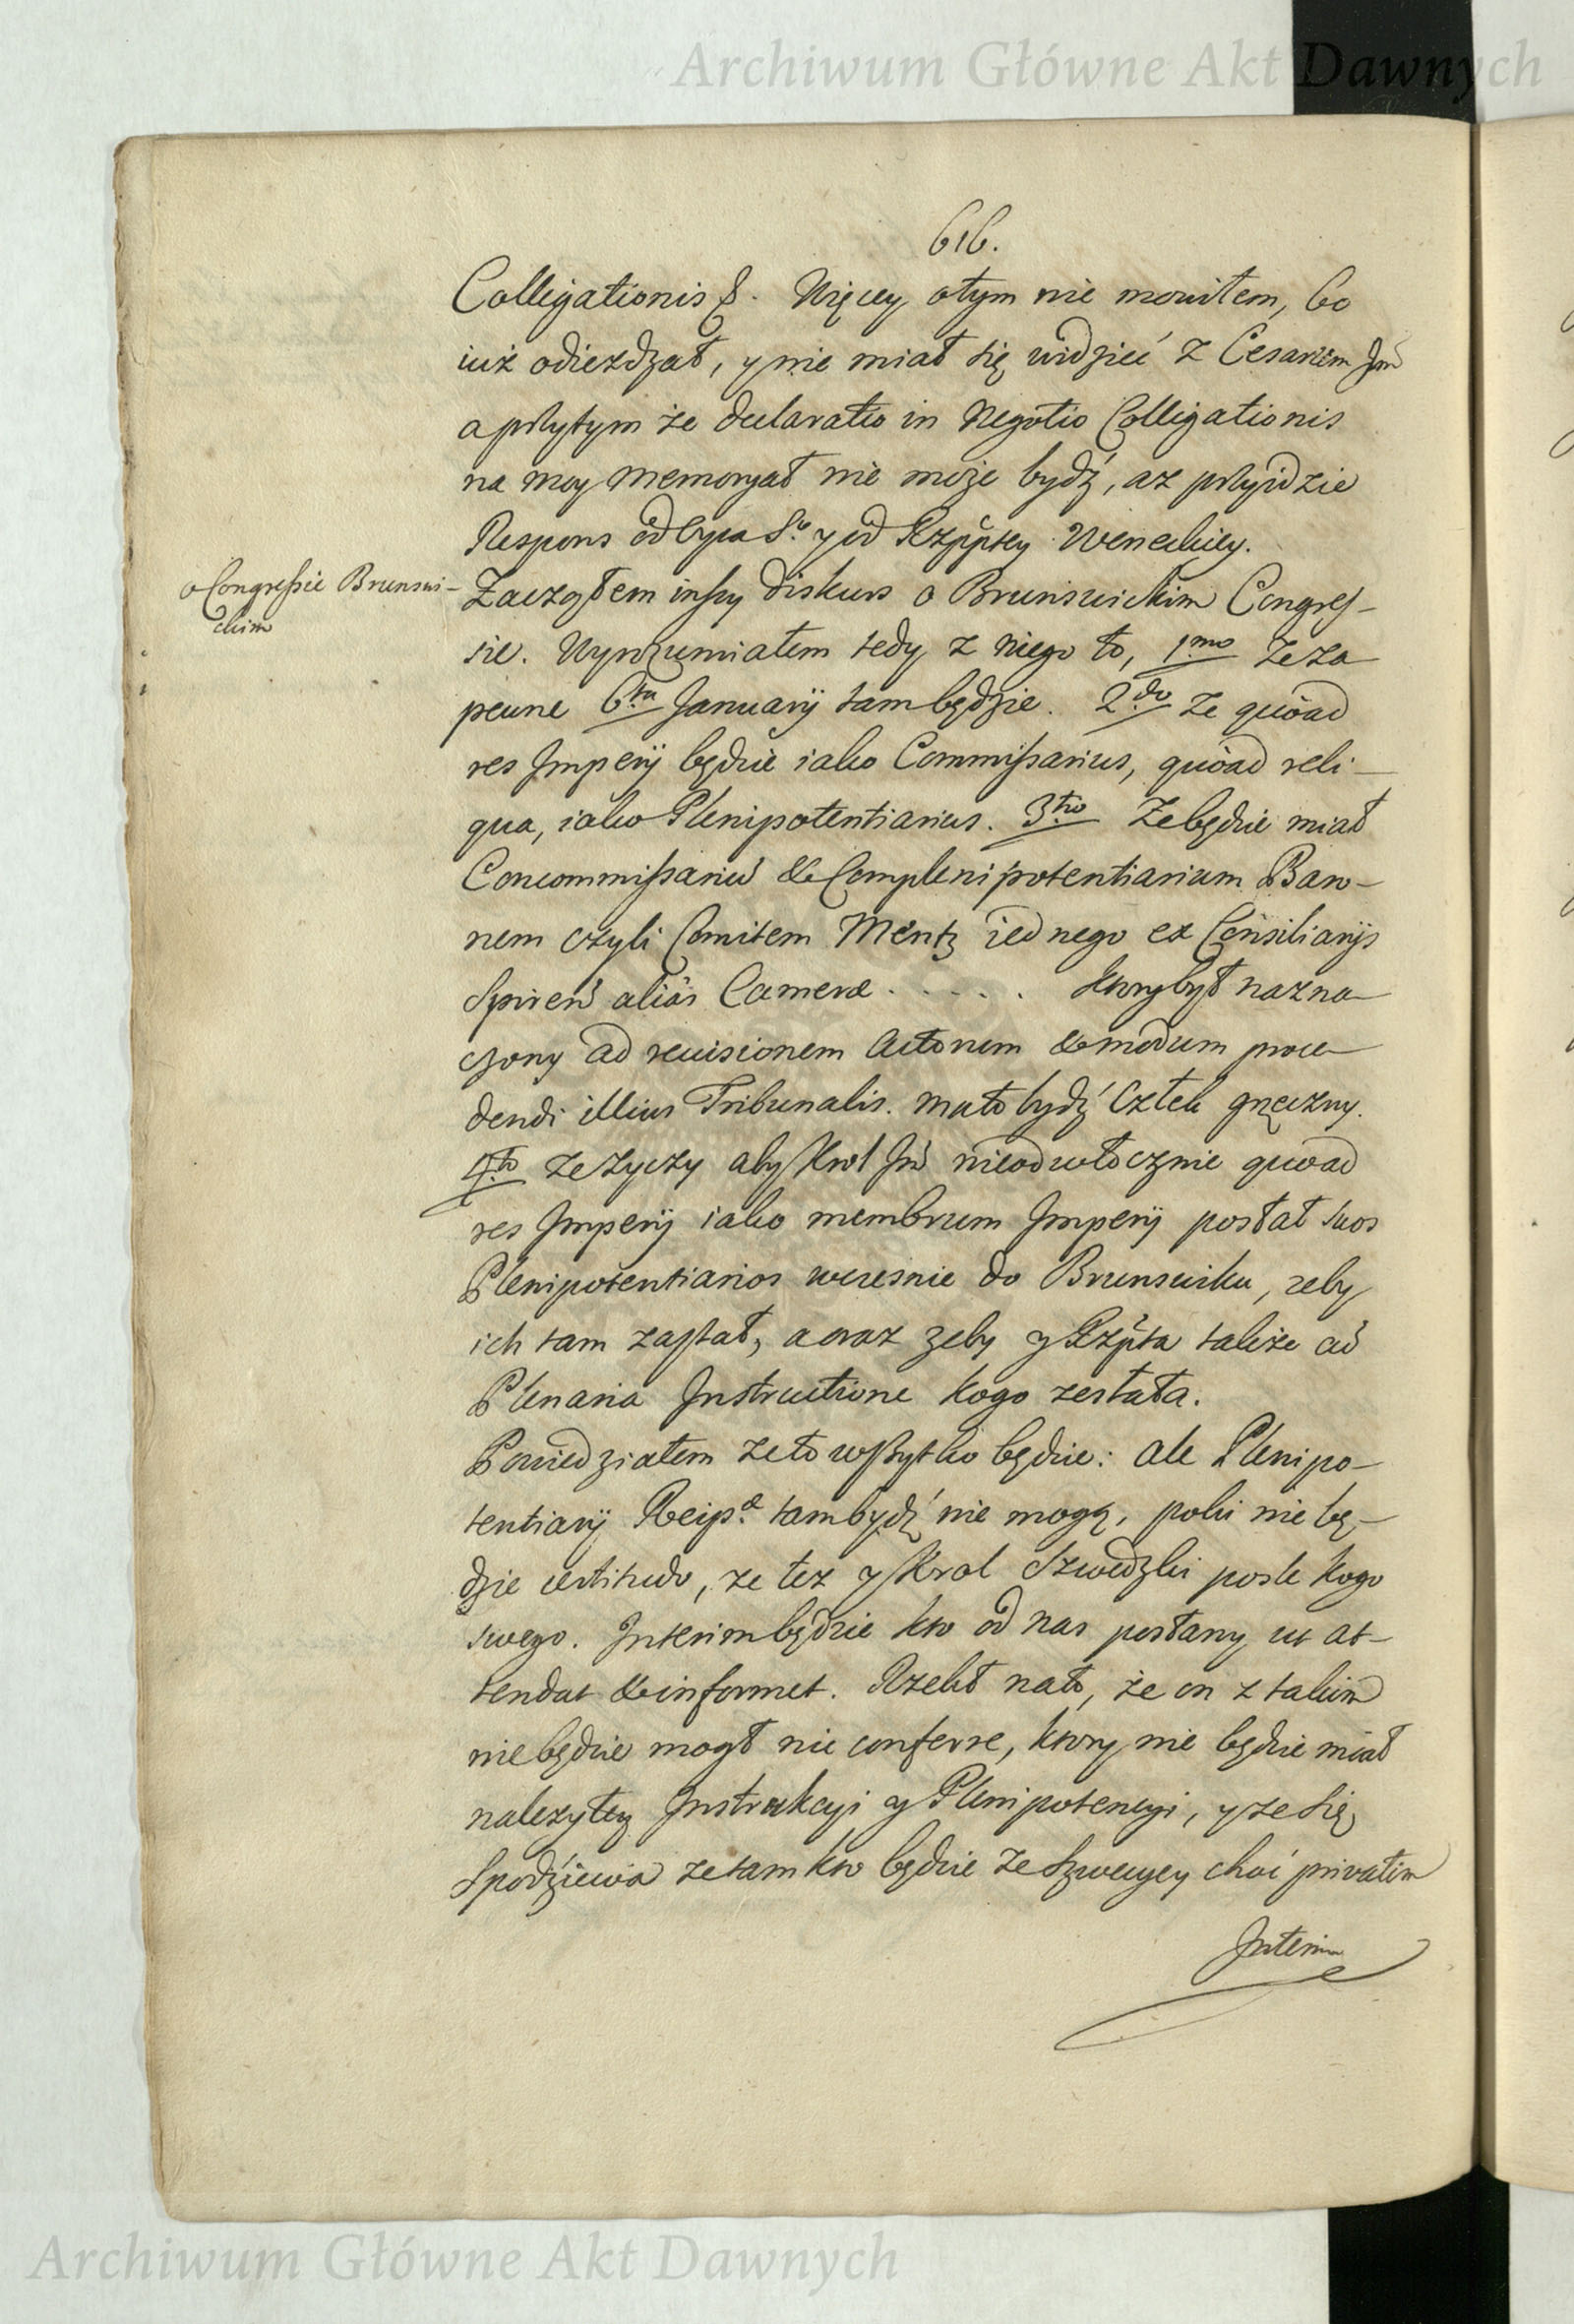 Archiwum Główne Akt Dawnych
616.
Colligationis &. Więcey otym nie mowiłem, bo
iuż odiezdzał, y nie miał się widzieć z Cesarzem Jm̃
a przytym że declaratio in Negotio Colligationis
na moy memoryał nie może bydź, az przyidzie
Respons od Oyca S.º y od Rzp̃ptey Weneckiey.
o Congressie Brunswi-
ckim
Zacząłem inszy diskurs o Brunswickim Congres-
sie. Wyrozumiałem tedy z niego to, 1.mo Ze za
pewne 6.ta January tam będzie. 2.do Ze quòad
res Impery będzie iako Commissarius, quòad reli-
qua, iako Plenipotentiarius. 3.tio Ze będzie miał
Concommissariũ & Complenipotentiarium Baro-
nem czyli Comitem Mentz iednego ex Consiliarys
Spireñ aliàs Cameræ . . . . . ktory był nazna-
czony ad revisionem Actorum & modum proce-
dendi illius Tribunalis. Ma to bydź Człek grzeczny.
4.to Ze zyczy aby Krol Jm̃ nieodwłocznie quoad
res Impery iako membrum Impery posłał suos
Plenipotentiarios wczesnie do Brunswiku, zeby
ich tam zastał, a oraz zeby y Rzp̃ta także cũ
Plenaria Instructione kogo zesłała.
Powiedziałem Ze to wszytko będzie: ale Plenipo-
tentiary Reip.æ tam bydź nie mogą, poki nie bę-
dzie certitudo, ze tez y Krol Szwedzki posle kogo
swego. Interim będzie kto od nas posłany ut at-
tendat & informet. Rzekł na to, że on z takim
nie będzie mogł nic conferre, ktory nie będzie miał
nalezytey Instrukcyi y Plenipotencyi, y ze się
Spodziewa ze tam kto będzie Ze Szwecyey choć privatim
Interim
Archiwum Główne Akt Dawnych